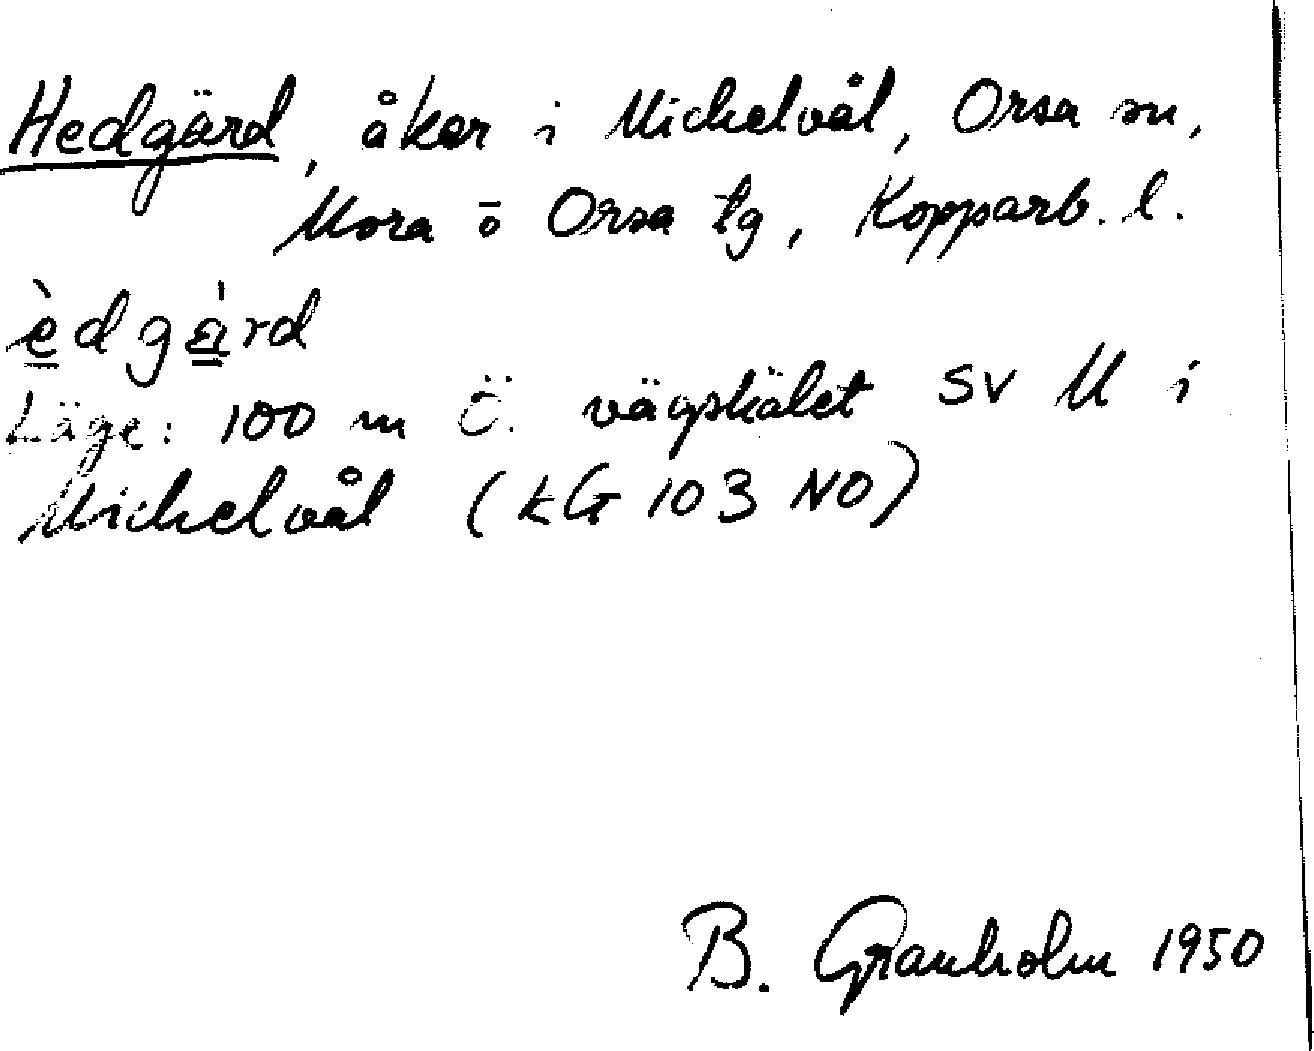 Hedgärd, åker i Mickelvål, Orsa sn,
Mora o Orsa tg, Kopparb. l.
èdgárd
Läge: 100 m Ö. vägskälet SV M i
Mickelvål (kG 103 NO)
B. Granholm 1950